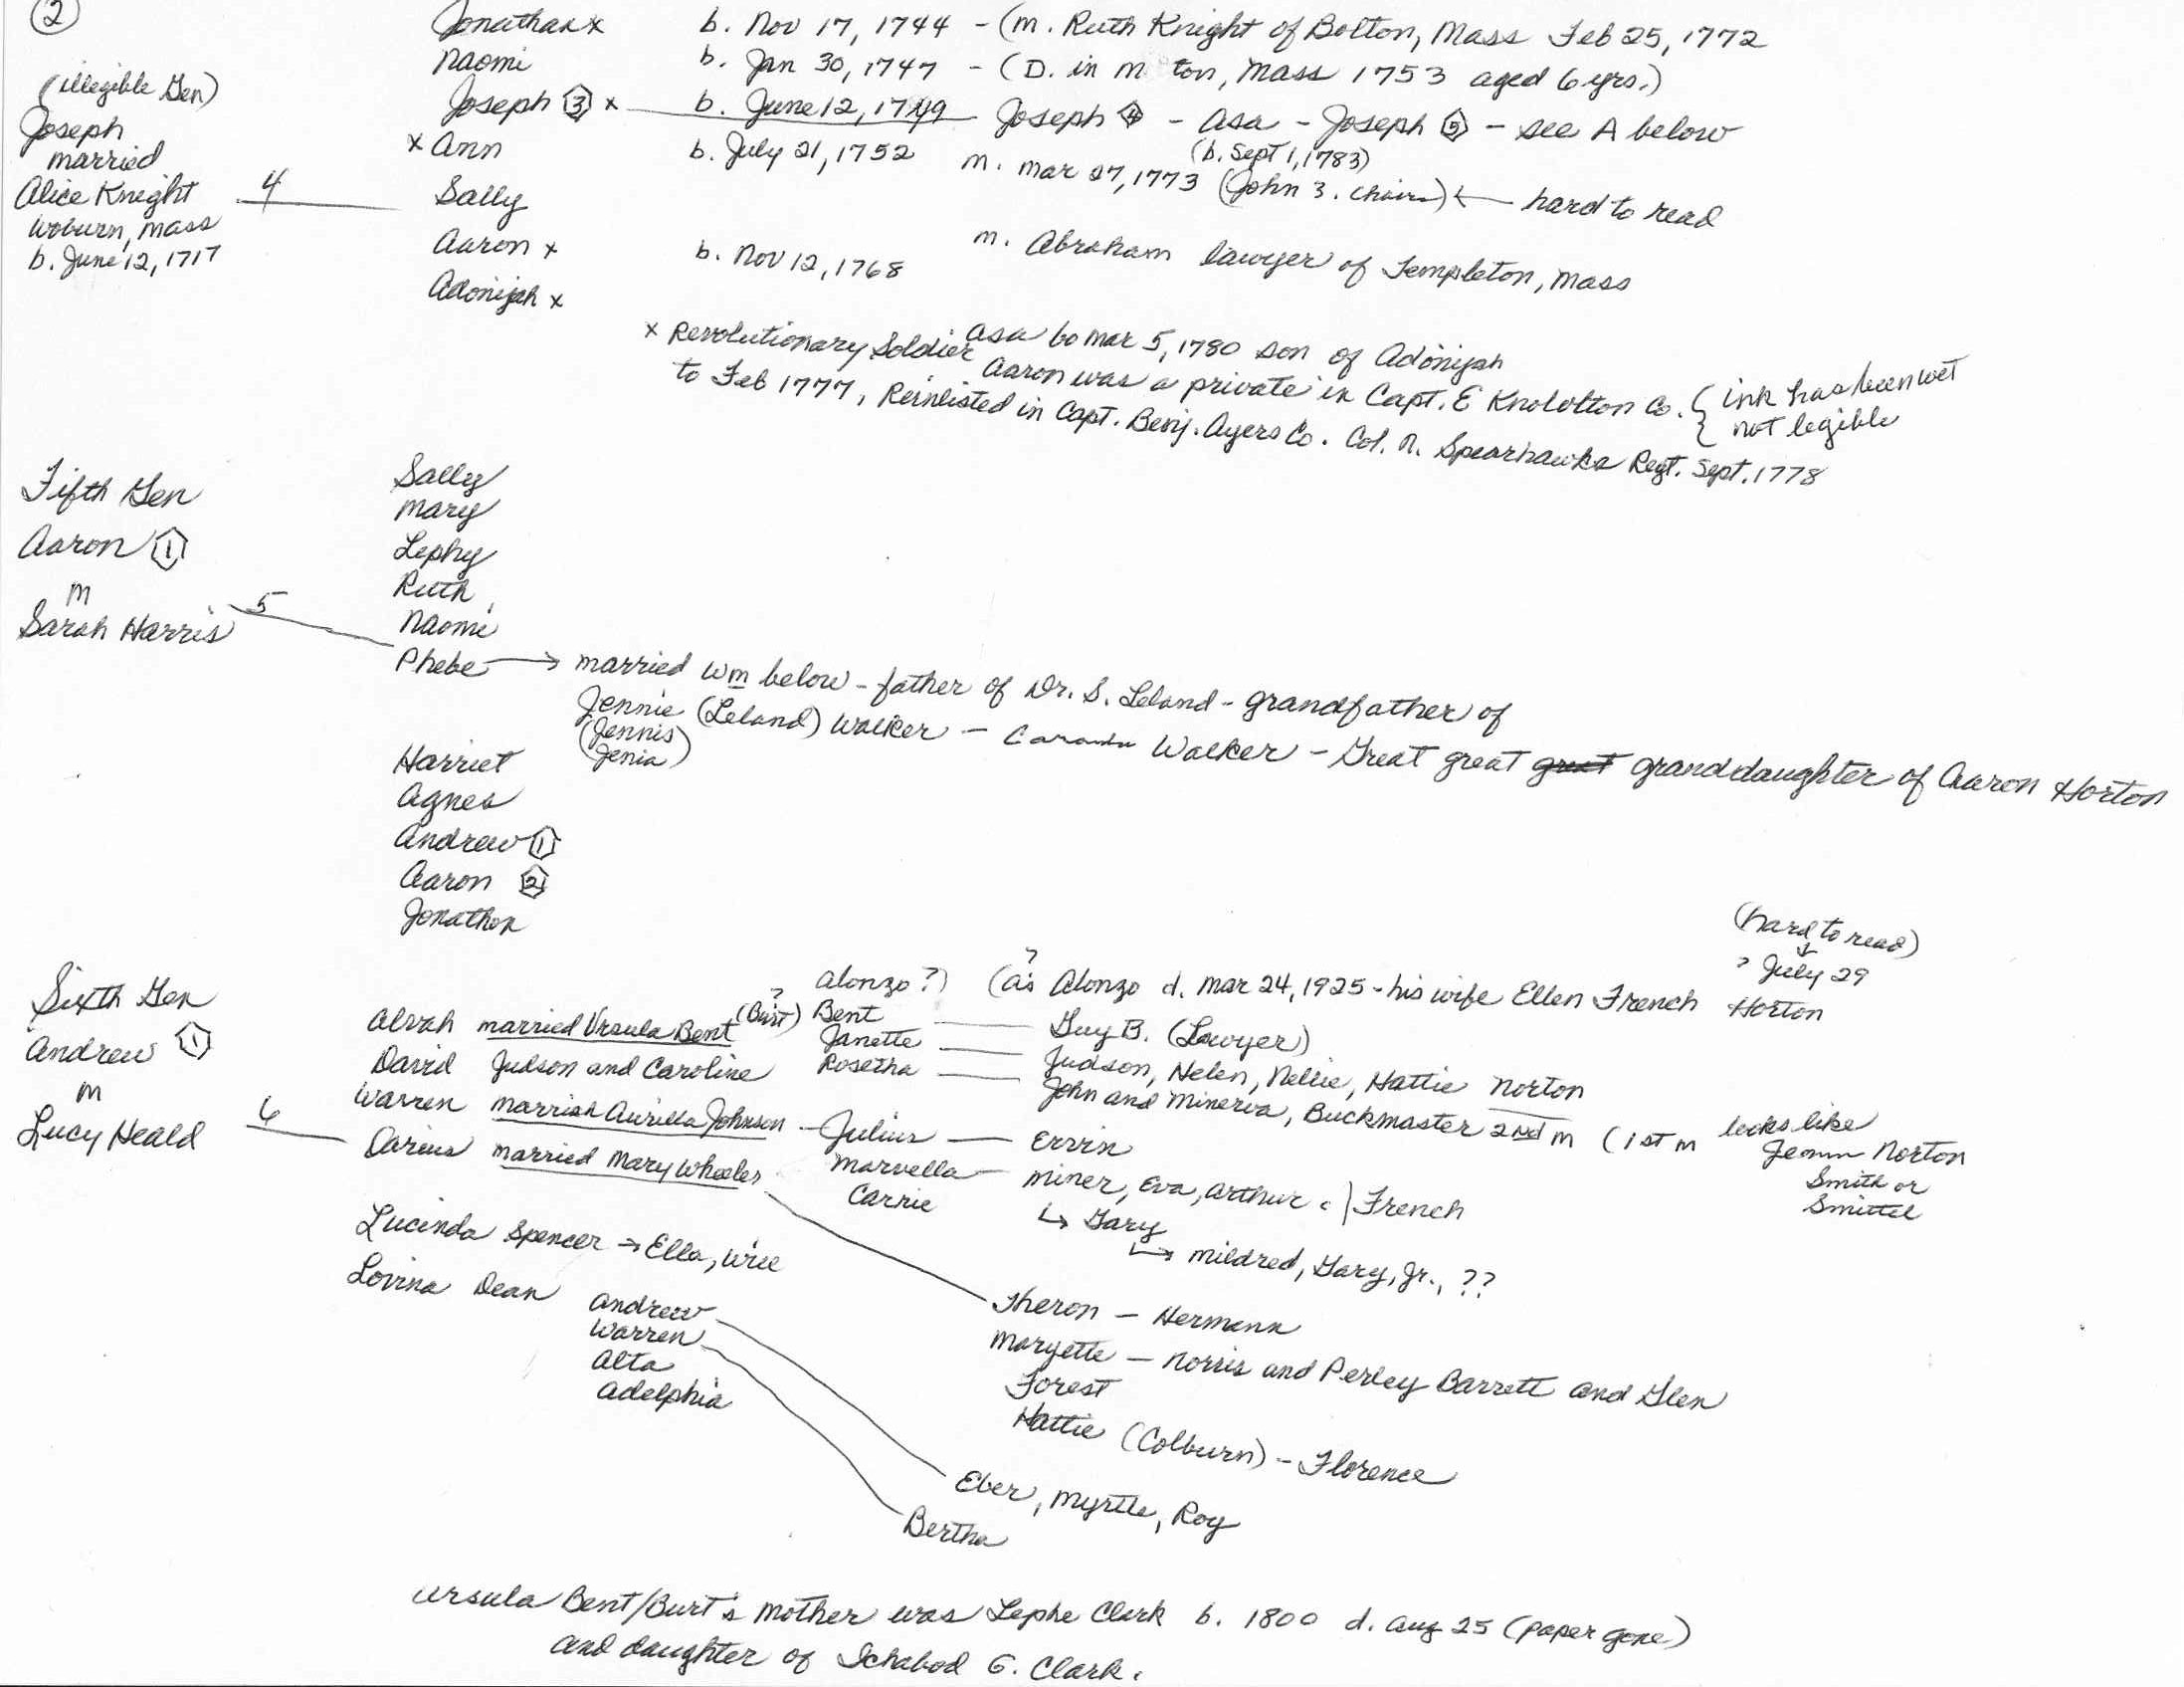 2
Jonathan x b. Nov 17, 1744 - (m. Ruth Knight of Bolton, Mass Feb 25, 1772
Naomi b. Jan 30, 1747 - (D. in M ton, Mass 1753 aged 6 yrs.)
(illegible Gen)
Joseph 3 x b. June 12, 1749 Joseph 4 - Asa - Joseph 5 - see A below
(b. Sept 1, 1783)
Joseph
married
Alice Knight 4
Woburn, Mass
b. June 12, 1717
x Ann b. July 21, 1752 m. Mar 27, 1773 (John 3. ) ← hard to read
Sally m. Abraham lawyer of Templeton, Mass
Aaron x b. Nov 12, 1768
Adonijah x
Asa bo Mar 5, 1780 son of Adonijah
x Revolutionary Soldier Aaron was a private in Capt. E Knowlton Co. { ink has been wet
{ not legible
to Feb 1777, Reinlisted in Capt. Benj. Ayers Co. Col. N. Spearhawks Regt. Sept. 1778
Fifth Gen
Aaron 1
m
Sarah Harris 5
Sally
Mary
Lephy
Ruth
Naomi
Phebe → married Wm below - father of Dr. S. Leland - grandfather of
Jennie (Leland) Walker - Walker - Great great great granddaughter of Aaron Horton
(Jennis
Jenia)
Harriet
Agnes
Andrew 1
Aaron 2
Jonathon
Sixth Gen
Andrew 1
m
Lucy Heald 6
(hard to read)
↓
? July 29
Alonzo?) (as ? Alonzo d. Mar 24, 1925 - his wife Ellen French Horton
Alvah married Ursula Bent (Burt) ? Bent Guy B. (Lawyer)
David Judson and Caroline Janette Judson, Helen, Nellie, Hattie Norton
Rosetha John and Minerva, Buckmaster 2nd m (1st m looks like
Norton
Smith or
Smittel
Warren married Aurilla Johnson - Julius Ervin
Marvella Miner, Eva, Arthur } French
Carrie
↳ Gary
↳ Mildred, Gary, Jr., ??
Darius married Mary Wheeler
Theron - Hermann
Maryette - Norris and Perley Barrett and Glen
Forest
Hattie (Colburn) - Florence
Lucinda Spencer → Ella, Will
Lovina Dean
Andrew
Warren
Alta
Adelphia
Eber, Myrtle, Roy
Bertha
Ursula Bent/Burt's mother was Lephe Clark b. 1800 d. Aug 25 (paper gone)
and daughter of Ichabod G. Clark.